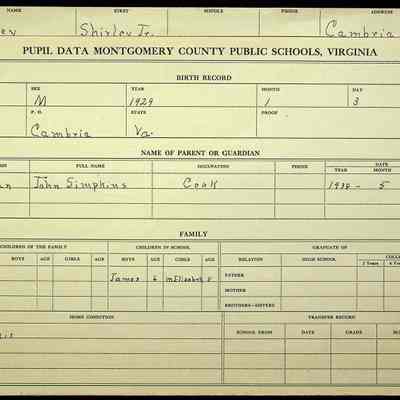 NAME FIRST MIDDLE PHONE ADDRESS
Shirley Jr. Cambria
PUPIL DATA MONTGOMERY COUNTY PUBLIC SCHOOLS, VIRGINIA
BIRTH RECORD
SEX YEAR MONTH DAY
M 1929 1 3
P. O. STATE PROOF
Cambria Va.
NAME OF PARENT OR GUARDIAN
FULL NAME OCCUPATION PHONE DATE
YEAR MONTH
John Simpkins Cook 1938- 5
FAMILY
CHILDREN OF THE FAMILY CHILDREN IN SCHOOL GRADUATE OF
BOYS AGE GIRLS AGE BOYS AGE GIRLS AGE RELATION HIGH SCHOOL
2 Years
James 6 FATHER
MOTHER
BROTHERS-SISTERS
HOME CONDITION TRANSFER RECORD
SCHOOL FROM DATE GRADE